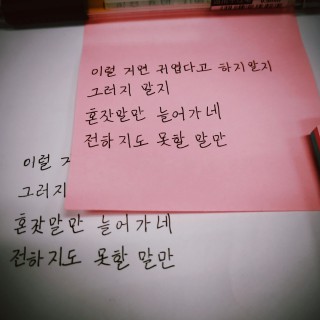 이럴 거면 귀엽다고 하지말지
그러지 말지
혼잣말만 늘어가네
전하지도 못할 말만
이럴
그러지
혼잣말만 늘어가네
전하지도 못할 말만